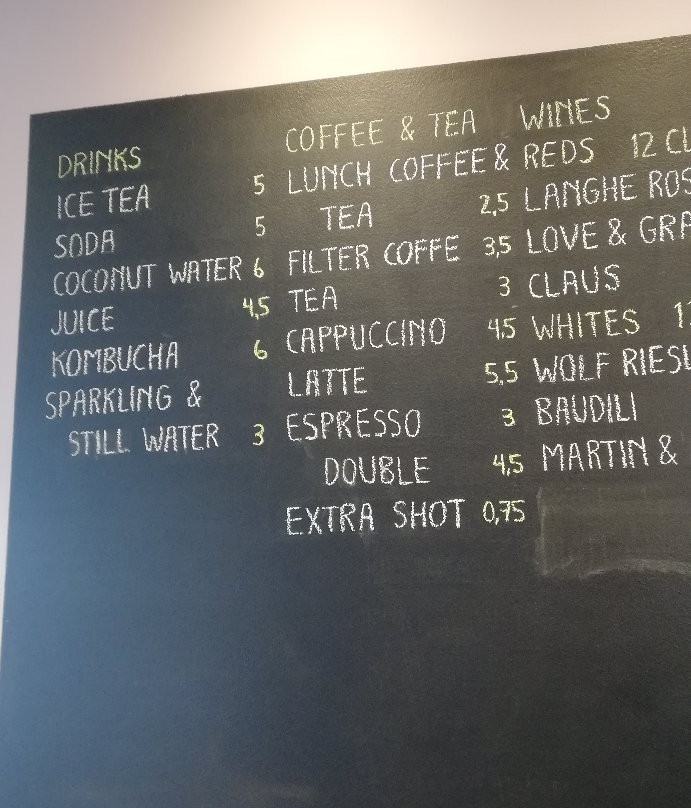 DRINKS
ICE TEA 5
SODA 5
COCONUT WATER 6
JUICE 4,5
KOMBUCHA 6
SPARKLING &
STILL WATER 3
COFFEE & TEA
LUNCH COFFEE &
TEA 2,5
FILTER COFFE 3,5
TEA 3
CAPPUCCINO 4,5
LATTE 5,5
ESPRESSO 3
DOUBLE 4,5
EXTRA SHOT 0,75
WINES
REDS 12 CL
LANGHE ROS
LOVE & GRA
CLAUS
WHITES 1
WOLF RIESL
BAUDILI
MARTIN &